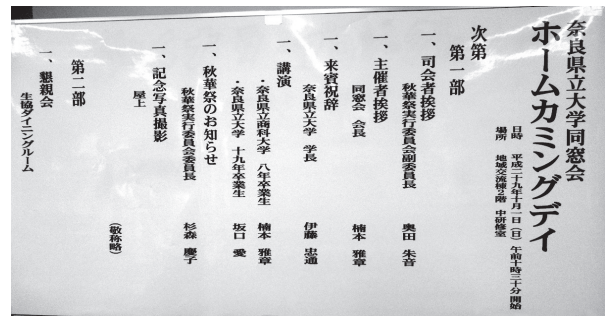 奈良県立大学同窓会
ホームカミングデイ
日時　平成二十九年十月一日（日）午前十時三十分　開始
場所　地域交流棟2階　中研修室
次第
第一部
一、司会者挨拶
秋華祭実行委員会副委員長　奥田　朱音
一、主催者挨拶
同窓会　会長　楠本　雅章
一、来賓祝辞
奈良県立大学　学長　伊藤　忠通
一、講演
・奈良県立商科大学　八年卒業生　楠本　雅章
・奈良県立大学　十九年卒業生　坂口　愛
一、秋華祭のお知らせ
秋華祭実行委員会委員長　杉森　慶子
一、記念写真撮影
屋上
（敬称略）
第二部
一、懇親会
生協ダイニングルーム